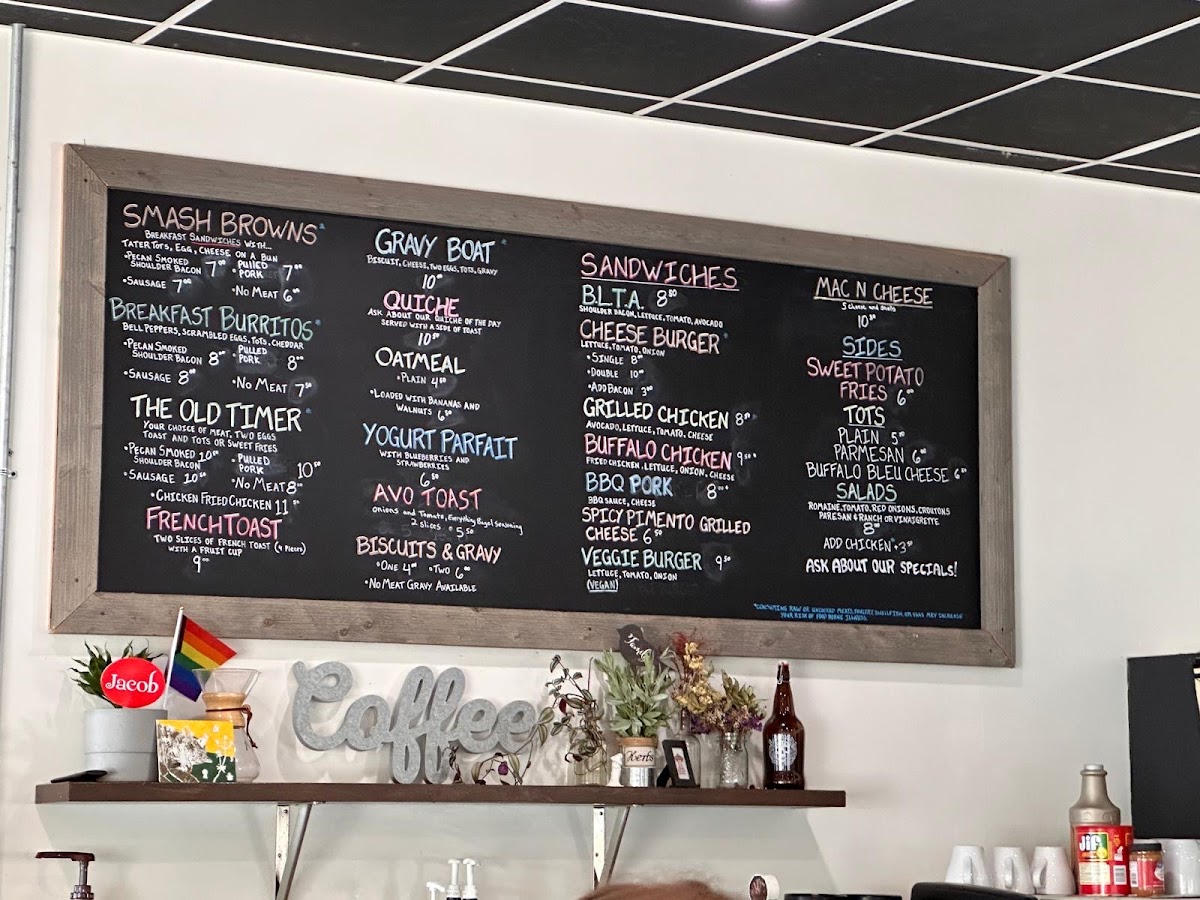 SMASH BROWNS*
BREAKFAST SANDWICHES WITH...
TATER TOTS, EGG, CHEESE ON A BUN
•PECAN SMOKED SHOULDER BACON 7⁰⁰
•PULLED PORK 7⁰⁰
•SAUSAGE 7⁰⁰
•NO MEAT 6⁰⁰
BREAKFAST BURRITOS*
BELL PEPPERS, SCRAMBLED EGGS, TOTS, CHEDDAR
•PECAN SMOKED SHOULDER BACON 8⁵⁰
•PULLED PORK 8⁵⁰
•SAUSAGE 8⁵⁰
•NO MEAT 7⁵⁰
THE OLD TIMER*
YOUR CHOICE OF MEAT, TWO EGGS
TOAST AND TOTS OR SWEET FRIES
•PECAN SMOKED SHOULDER BACON 10⁵⁰
•PULLED PORK 10⁵⁰
•SAUSAGE 10⁵⁰
•NO MEAT 8⁵⁰
•CHICKEN FRIED CHICKEN 11⁵⁰
FRENCH TOAST
TWO SLICES OF FRENCH TOAST (4 PIECES)
WITH A FRUIT CUP
9⁰⁰
GRAVY BOAT*
BISCUIT, CHEESE, TWO EGGS, TOTS, GRAVY
10⁵⁰
QUICHE
ASK ABOUT OUR QUICHE OF THE DAY
SERVED WITH A SIDE OF TOAST
10⁵⁰
OATMEAL
•PLAIN 4⁵⁰
•LOADED WITH BANANAS AND
WALNUTS 6⁵⁰
YOGURT PARFAIT
WITH BLUEBERRIES AND
STRAWBERRIES
6⁵⁰
AVO TOAST
Onions and Tomato, Everything Bagel Seasoning
2 Slices * 5⁵⁰
BISCUITS & GRAVY
•ONE 4⁰⁰ •TWO 6⁰⁰
•NO MEAT GRAVY AVAILABLE
SANDWICHES
B.L.T.A. 8⁵⁰
SHOULDER BACON, LETTUCE, TOMATO, AVOCADO
CHEESE BURGER*
LETTUCE, TOMATO, ONION
•SINGLE 8⁵⁰
•DOUBLE 10⁵⁰
•ADD BACON 3⁰⁰
GRILLED CHICKEN 8⁵⁰*
AVOCADO, LETTUCE, TOMATO, CHEESE
BUFFALO CHICKEN 9⁵⁰*
FRIED CHICKEN, LETTUCE, ONION, CHEESE
BBQ PORK 8⁰⁰*
BBQ SAUCE, CHEESE
SPICY PIMENTO GRILLED
CHEESE 6⁵⁰
VEGGIE BURGER 9⁵⁰
LETTUCE, TOMATO, ONION
(VEGAN)
MAC N CHEESE
5 cheese and shells
10⁵⁰
SIDES
SWEET POTATO
FRIES 6⁰⁰
TOTS
PLAIN 5⁵⁰
PARMESAN 6⁰⁰
BUFFALO BLEU CHEESE 6⁵⁰
SALADS
ROMAINE, TOMATO, RED ONIONS, CROUTONS
PARESAN & RANCH OR VINAIGRETTE
8⁰⁰
ADD CHICKEN* +3⁵⁰
ASK ABOUT OUR SPECIALS!
*CONSUMING RAW OR UNDERCOOKED MEATS, POULTRY, SHELLFISH, OR EGGS MAY INCREASE
YOUR RISK OF FOOD BORNE ILLNESS.
Jacob
Coffee
Herbs
Jif